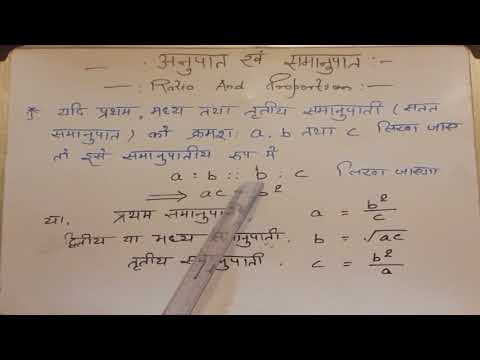 —: अनुपात एवं समानुपात :—
—: Ratio And Proportion :—
* यदि प्रथम, मध्य तथा तृतीय समानुपाती (सतत
समानुपात) को क्रमशः a, b तथा c लिखा जाए
तो इसे समानुपातीय रुप में
a : b :: b : c लिखा जाएगा
⟹ ac = b²
या. प्रथम समानुपाती a = b²/c
द्वितीय या मध्य समानुपाती. b = √ac
तृतीय समानुपाती. c = b²/a